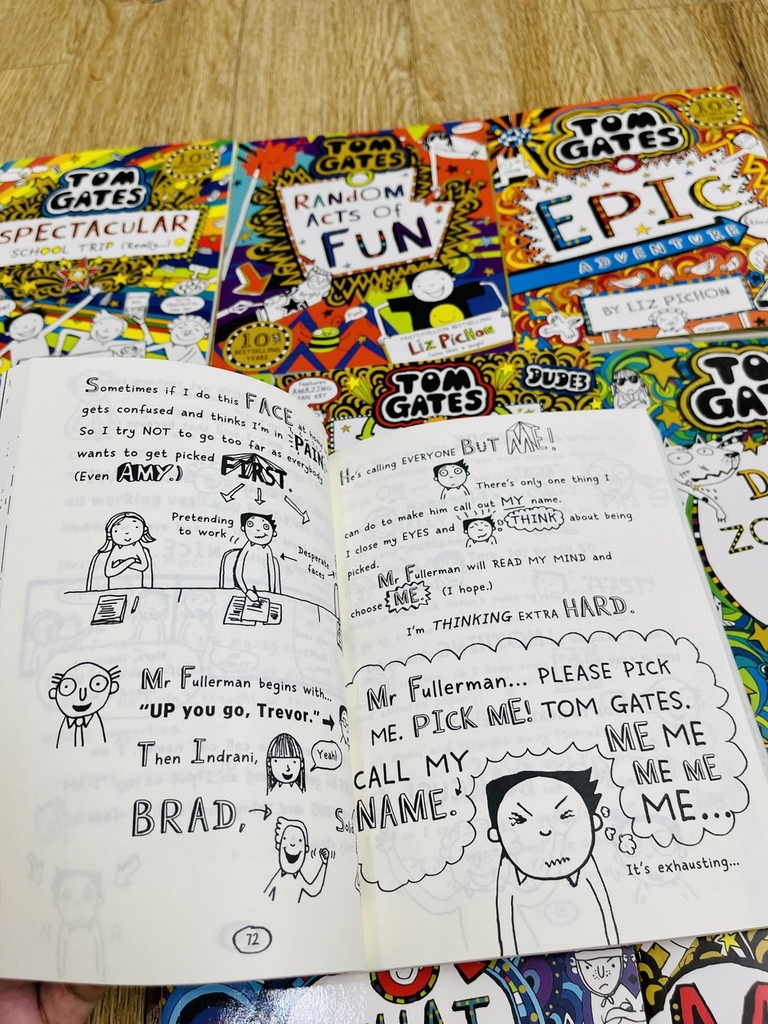 TOM
GATES
SPECTACULAR
SCHOOL TRIP (Really...)
TOM
GATES
RANDOM
ACTS of
FUN
10
BESTSELLING
YEARS
MULTI-MILLION BESTSELLING
Liz Pichon
TOM
GATES
EPIC
ADVENTURE
BY LIZ PICHON
Features
AMAZING
FAN ART
TOM
GATES
DUDE3
TO
GA
D
ZO
Sometimes if I do this FACE at
gets confused and thinks I'm in PAIN
So I try NOT to go too far as everybody
wants to get picked FIRST.
(Even AMY.)
Pretending
to work
Desperate
faces
Mr Fullerman begins with...
"UP you go, Trevor."
Then Indrani,
Yeah!
BRAD,
So
72
He's calling EVERYONE BUT ME!
There's only one thing I
can do to make him call out MY name.
I close my EYES and THINK about being
picked.
Mr Fullerman will READ MY MIND and
choose ME. (I hope.)
I'm THINKING EXTRA HARD.
Mr Fullerman... PLEASE PICK
ME. PICK ME! TOM GATES.
CALL MY
NAME.
ME ME
ME ME
ME...
It's exhausting...